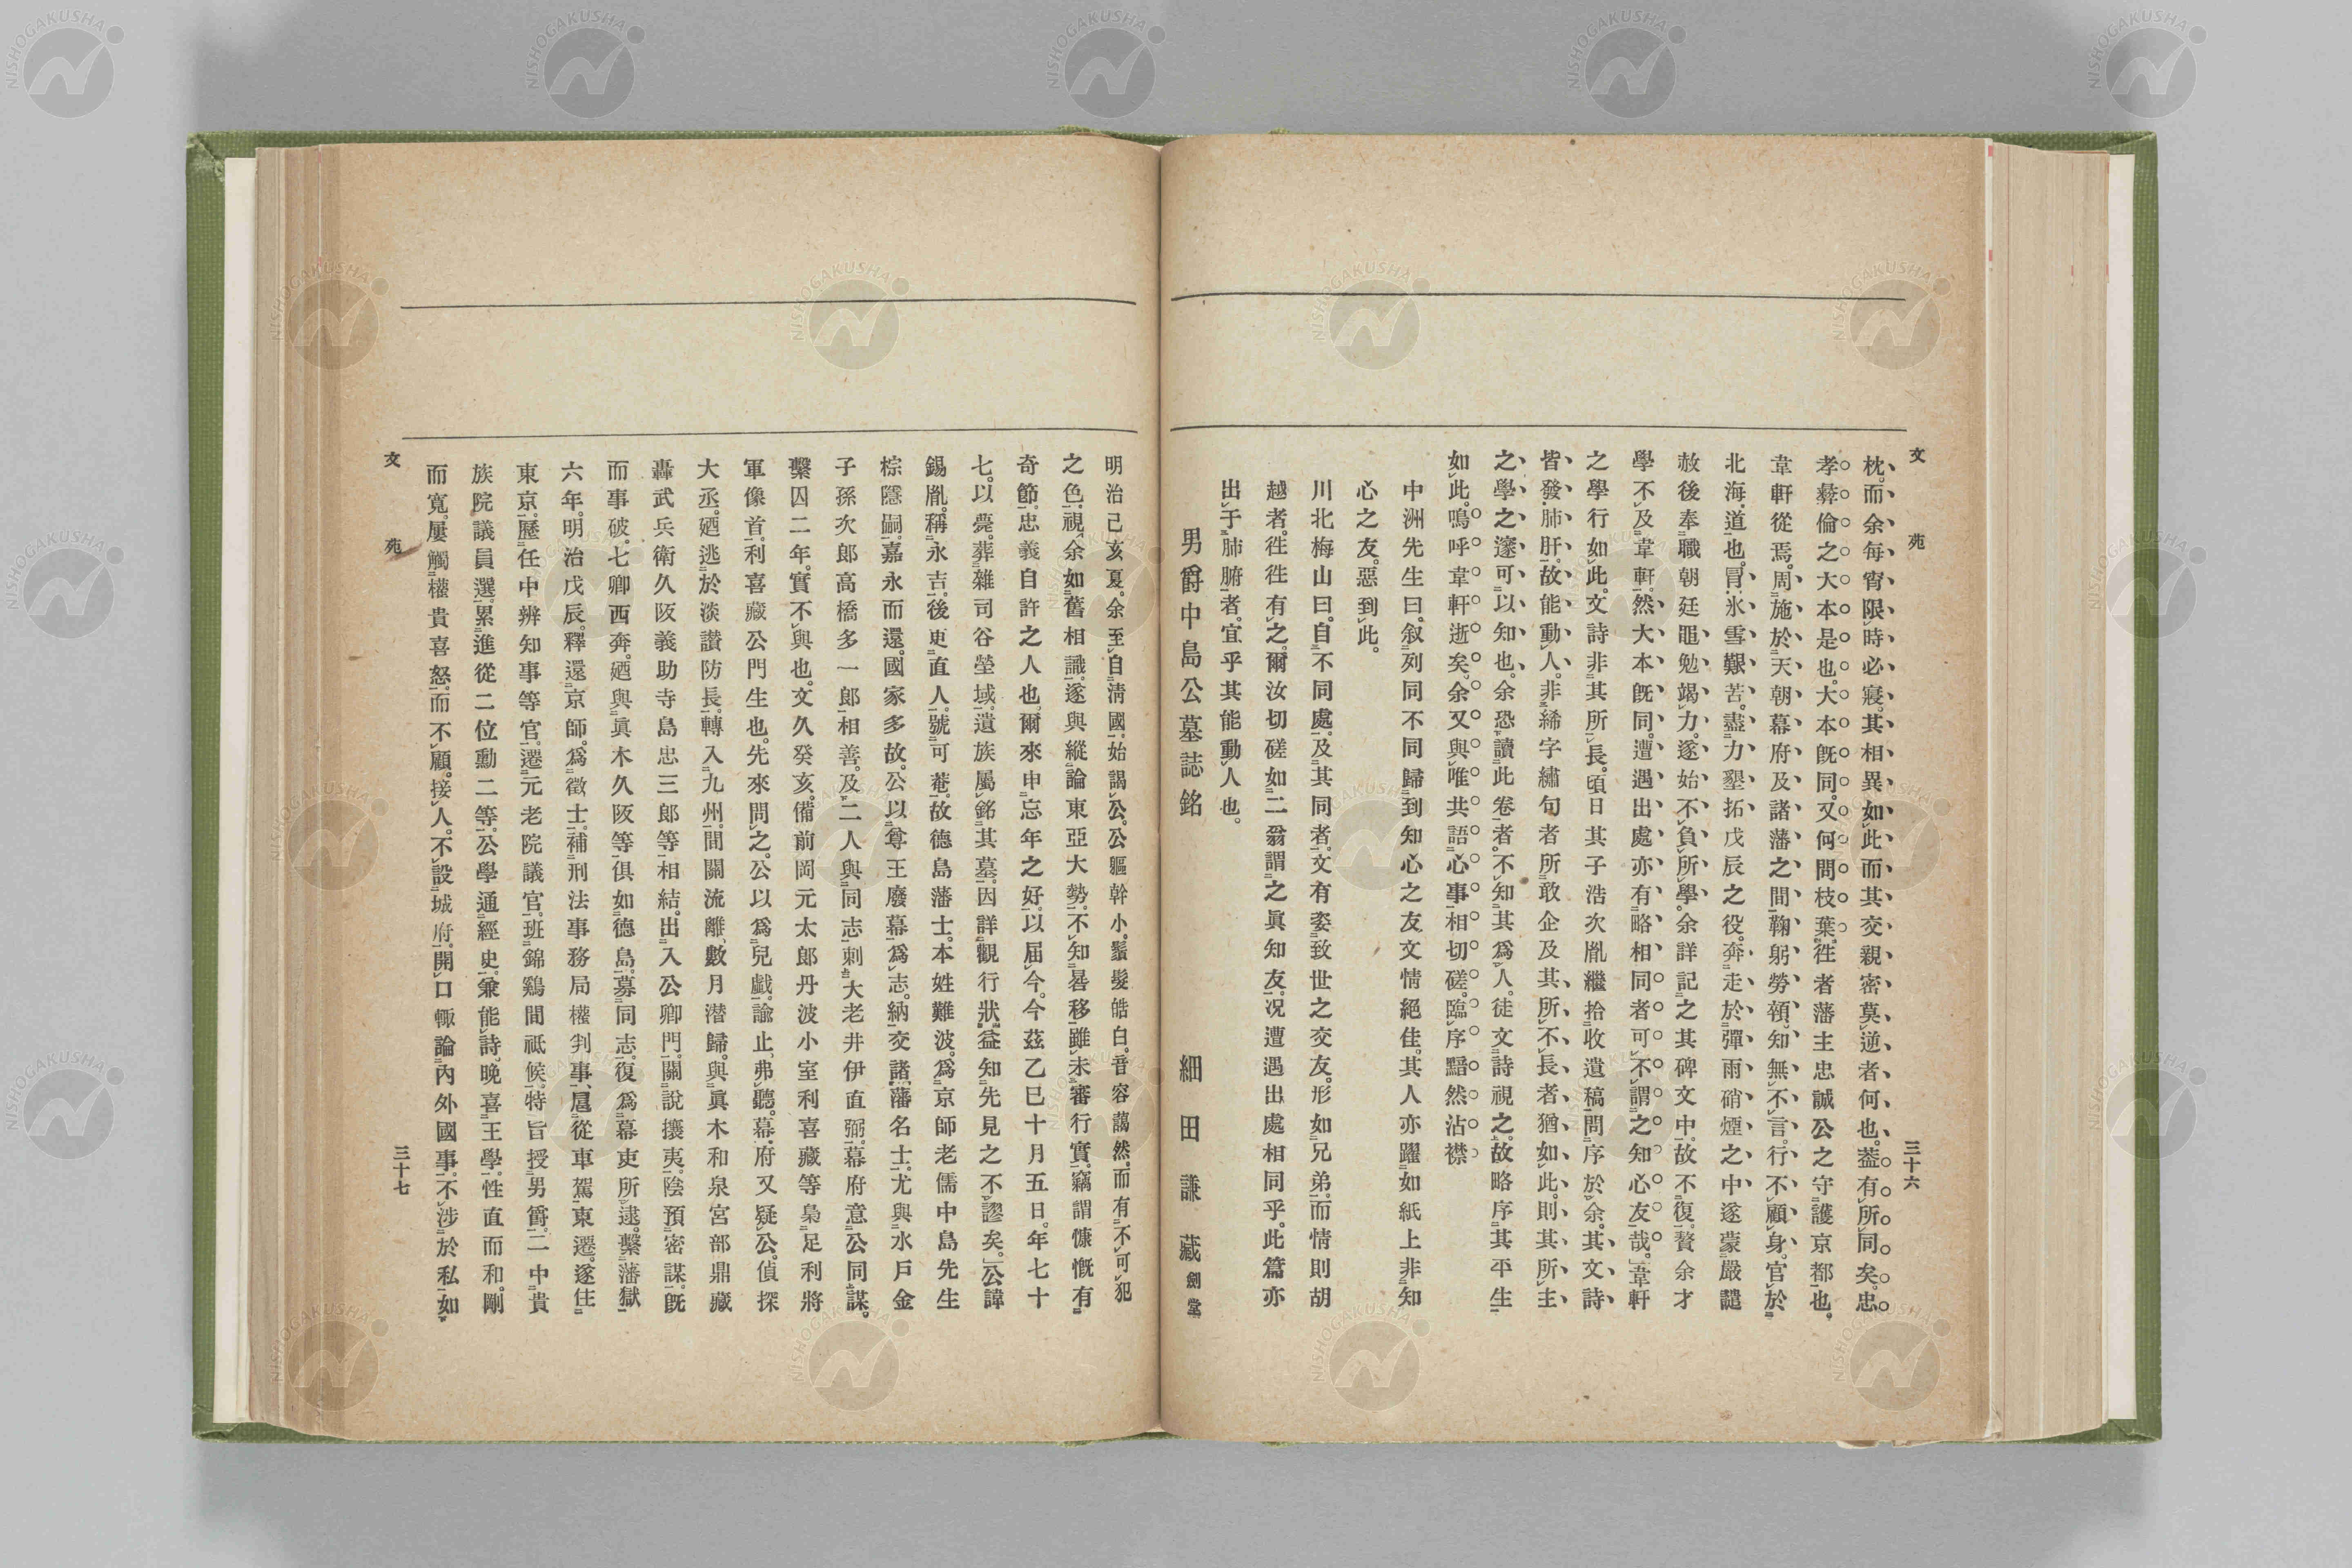 文苑
三十六
枕。而余每宵限時必寢。其相異如此而其交親密莫逆者何也。蓋有所同矣。忠
孝彜倫之大本是也。大本既同。又何問枝葉。徃者藩主忠誠公之守護京都也。
韋軒從焉。周施於天朝幕府及諸藩之間、鞠躬勞顇、知無不言。行不顧身。官於
北海道也。冒氷雪艱苦。盡力墾拓。戊辰之役。奔走於彈雨硝煙之中遂蒙嚴譴
赦後奉職朝廷黽勉竭力。遂始不負所學。余詳記之其碑文中。故不復贅余才
學不及韋軒。然大本既同。遭遇出處亦有略相同者可不謂之知心友哉。韋軒
之學行如此。文詩非其所長。頃日其子浩次胤繼拾收遺稿問序於余。其文詩
皆發肺肝。故能動人。非絺字繡句者所敢企及其所不長者猶如此。則其所主
之學之邃可以知也。余恐讀此卷者。不知其爲人。徒文詩視之。故略序其平生
如此。嗚呼韋軒逝矣。余又與唯共語心事相切磋。臨序黯然沾襟
中洲先生曰。叙列同不同歸到知心之友。文情絕佳。其人亦躍如紙上非知
心之友。惡到此。
川北梅山曰。自不同處。及其同者。文有姿致世之交友。形如兄弟。而情則胡
越者。徃徃有之。爾汝切磋如二翁謂之眞知友。况遭遇出處相同乎。此篇亦
出于肺腑者。宜乎其能動人也。
男爵中島公墓誌銘
細田謙藏劍堂
明治己亥夏。余至自清國。始謁公。公軀幹小。鬚髮皓白。音容藹然。而有不可犯
之色。視余如舊相識。遂與縱論東亞大勢。不知晷移。雖未審行實。竊謂慷慨有
奇節。忠義自許之人也。爾來申忘年之好。以届今。今茲乙巳十月五日。年七十
七。以薨。葬雜司谷塋域。遺族屬銘其墓。因詳觀行狀。益知先見之不謬矣。公諱
錫胤。稱永吉。後更直人。號可菴。故德島藩士。本姓難波。爲京師老儒中島先生
棕隱嗣。嘉永而還。國家多故。公以尊王廢幕爲志。納交諸藩名士。尤與水戶金
子孫次郎高橋多一郎相善。及二人與同志刺大老井伊直弼。幕府意公同謀。
繫囚二年。實不與也。文久癸亥。備前岡元太郎丹波小室利喜藏等梟足利將
軍像首。利喜藏公門生也。先來問之。公以爲兒戲。諭止弗聽。幕府又疑公。偵探
大丞。廼逃於淡讃防長。轉入九州。間關流離。數月潜歸。與眞木和泉宮部鼎藏
轟武兵衛久阪義助寺島忠三郎等相結。出入公卿門。關說攘夷。陰預密謀。既
而事破。七卿西奔。廼與眞木久阪等俱如德島。募同志。復爲幕吏所逮。繫藩獄
六年。明治戊辰。釋還京師。爲徵士。補刑法事務局權判事、扈從車駕東遷。遂住
東京。歷任中辨知事等官。遷元老院議官。班錦鷄間祗候。特旨授男爵。二中貴
族院議員選。累進從二位勳二等。公學通經史。兼能詩。晚喜王學。性直而和。剛
而寬。屢觸權貴喜怒。而不顧。接人。不設城府。開口輙論內外國事。不涉於私。如
文苑
三十七